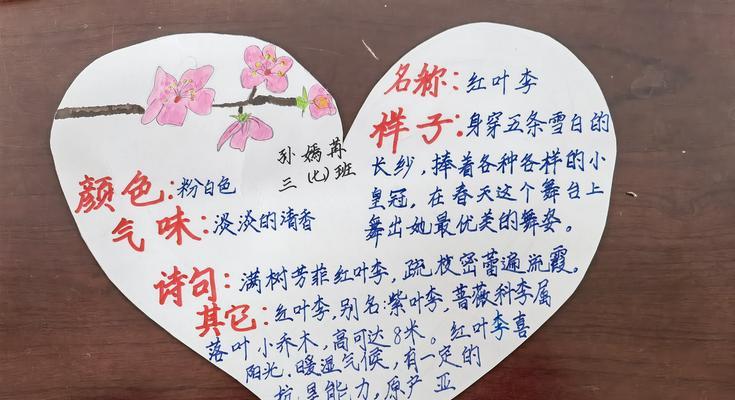 名称:红叶李
样子:身穿五条雪白的
长纱,捧着各种各样的小
皇冠,在春天这个舞台上
舞出她最优美的舞姿。
孙嫣苒
三(七)班
颜色:粉白色
气味:淡淡的清香
诗句:满树芳菲红叶李,疏枝密蕾遍流霞。
其它:红叶李,别名:紫叶李,蔷薇科李属
落叶小乔木,高可达8米。红叶李喜
阳光.暖湿气候,有一定的
抗旱能力,原产亚